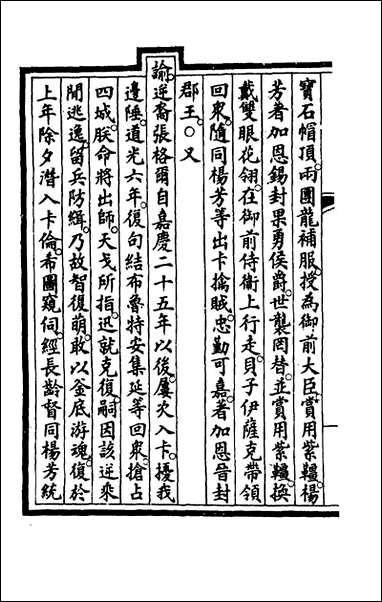 寶石帽頂。兩團龍補服。授為御前大臣。賞用紫韁。楊
芳著加恩錫封果勇侯爵。世襲罔替。並賞用紫韁。換
戴雙眼花翎。在御前侍衛上行走。貝子伊薩克帶領
回衆。隨同楊芳等出卡擒賊。忠勤可嘉。著加恩晉封
郡王。○又
諭。逆裔張格爾自嘉慶二十五年以後。屢次入卡。擾我
邊陲。道光六年。復句結布魯特安集延等回衆。搶占
四城。朕命將出師。天戈所指。迅就克復。嗣因該逆乘
閒逃逸。留兵防緝。乃故智復萌。敢以釜底游魂。復於
上年除夕潛入卡倫。希圖窺伺。經長齡督同楊芳統